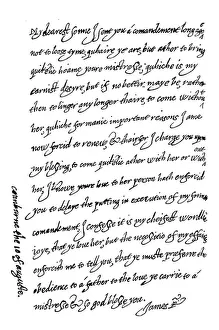 My dearest sonne I sent you a comandement long ago
not to loose tyme, quhaire ye are, but ather to bring
quikklie hoame youre mistresse, quhiche is my
earnist desyre, but if no better maye be, rather
then to linger any longer thaire, to come without
her, quhiche for manie important reasons I ame
now forcid to renew, & thairfor I charge you upon
my blessing to come quikklie ather with her or without
her, I knowe youre love to her person hath enforced
you to delaye the putting in execution of my former
comandement, I confesse it is my cheifest worldlie
joye, that ye love her, but the necessitie of my effaires
enforcith me to tell you, that ye must præferre the
obedience to a father to the love ye carrie to a
mistresse & so god blesse you.
James R
cranborne the 10 of auguste.